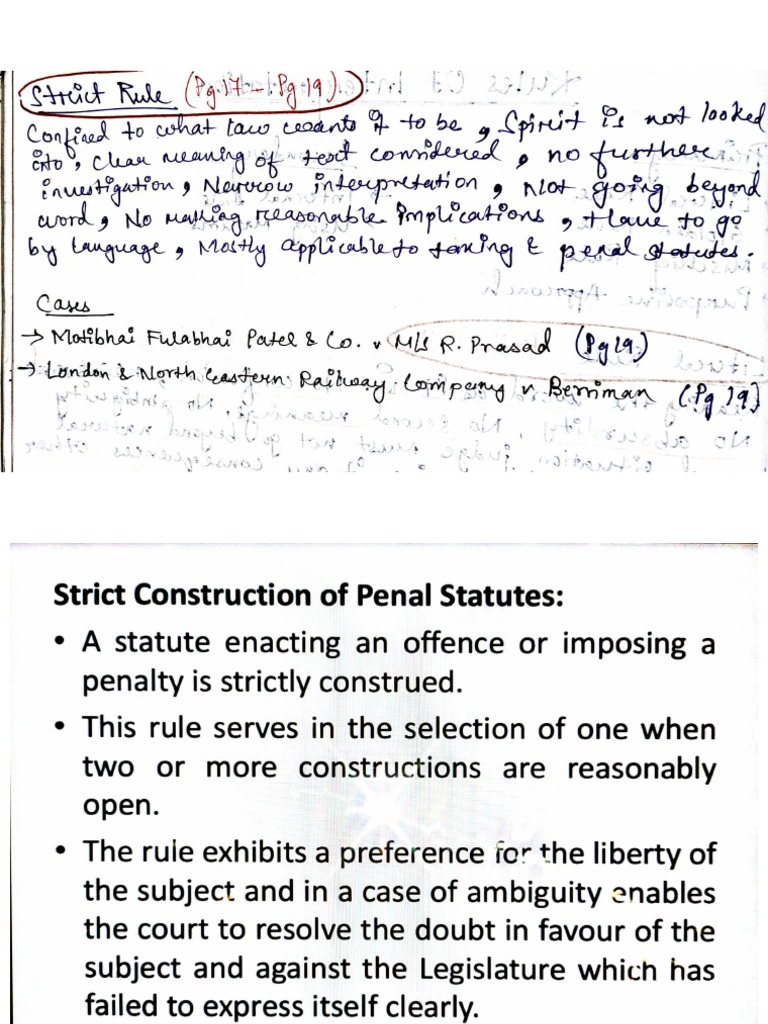 Strict Rule (Pg 17 - Pg 19)
Confined to what law wants it to be, Spirit is not looked
into, Clear meaning of text considered, no further
investigation, Narrow interpretation, Not going beyond
word, No making reasonable implications, Have to go
by language, Mostly applicable to taxing & penal statutes.
Cases
→ Motibhai Fulabhai Patel & Co. v M/s R. Prasad (Pg 19)
→ London & North Eastern Railway Company v Berriman (Pg 19)
Strict Construction of Penal Statutes:
• A statute enacting an offence or imposing a
penalty is strictly construed.
• This rule serves in the selection of one when
two or more constructions are reasonably
open.
• The rule exhibits a preference for the liberty of
the subject and in a case of ambiguity enables
the court to resolve the doubt in favour of the
subject and against the Legislature which has
failed to express itself clearly.